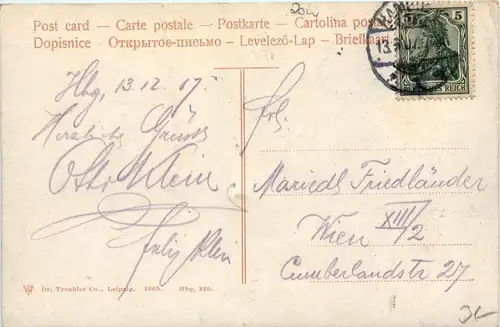 Post card — Carte postale — Postkarte — Cartolina postale
Dopisnice — Открытое-письмо — Levelező-Lap — Briefkaart
5 5
DEUTSCHES REICH
13.
Hbg, 13.12.07.
Herzliche Grüsse
Otto Klein
Felix Klein
Frl.
Mariedl Friedländer
Wien XIII/2
Cumberlandstr 27
Dr. Trenkler Co., Leipzig. 1905. Hbg. 320.